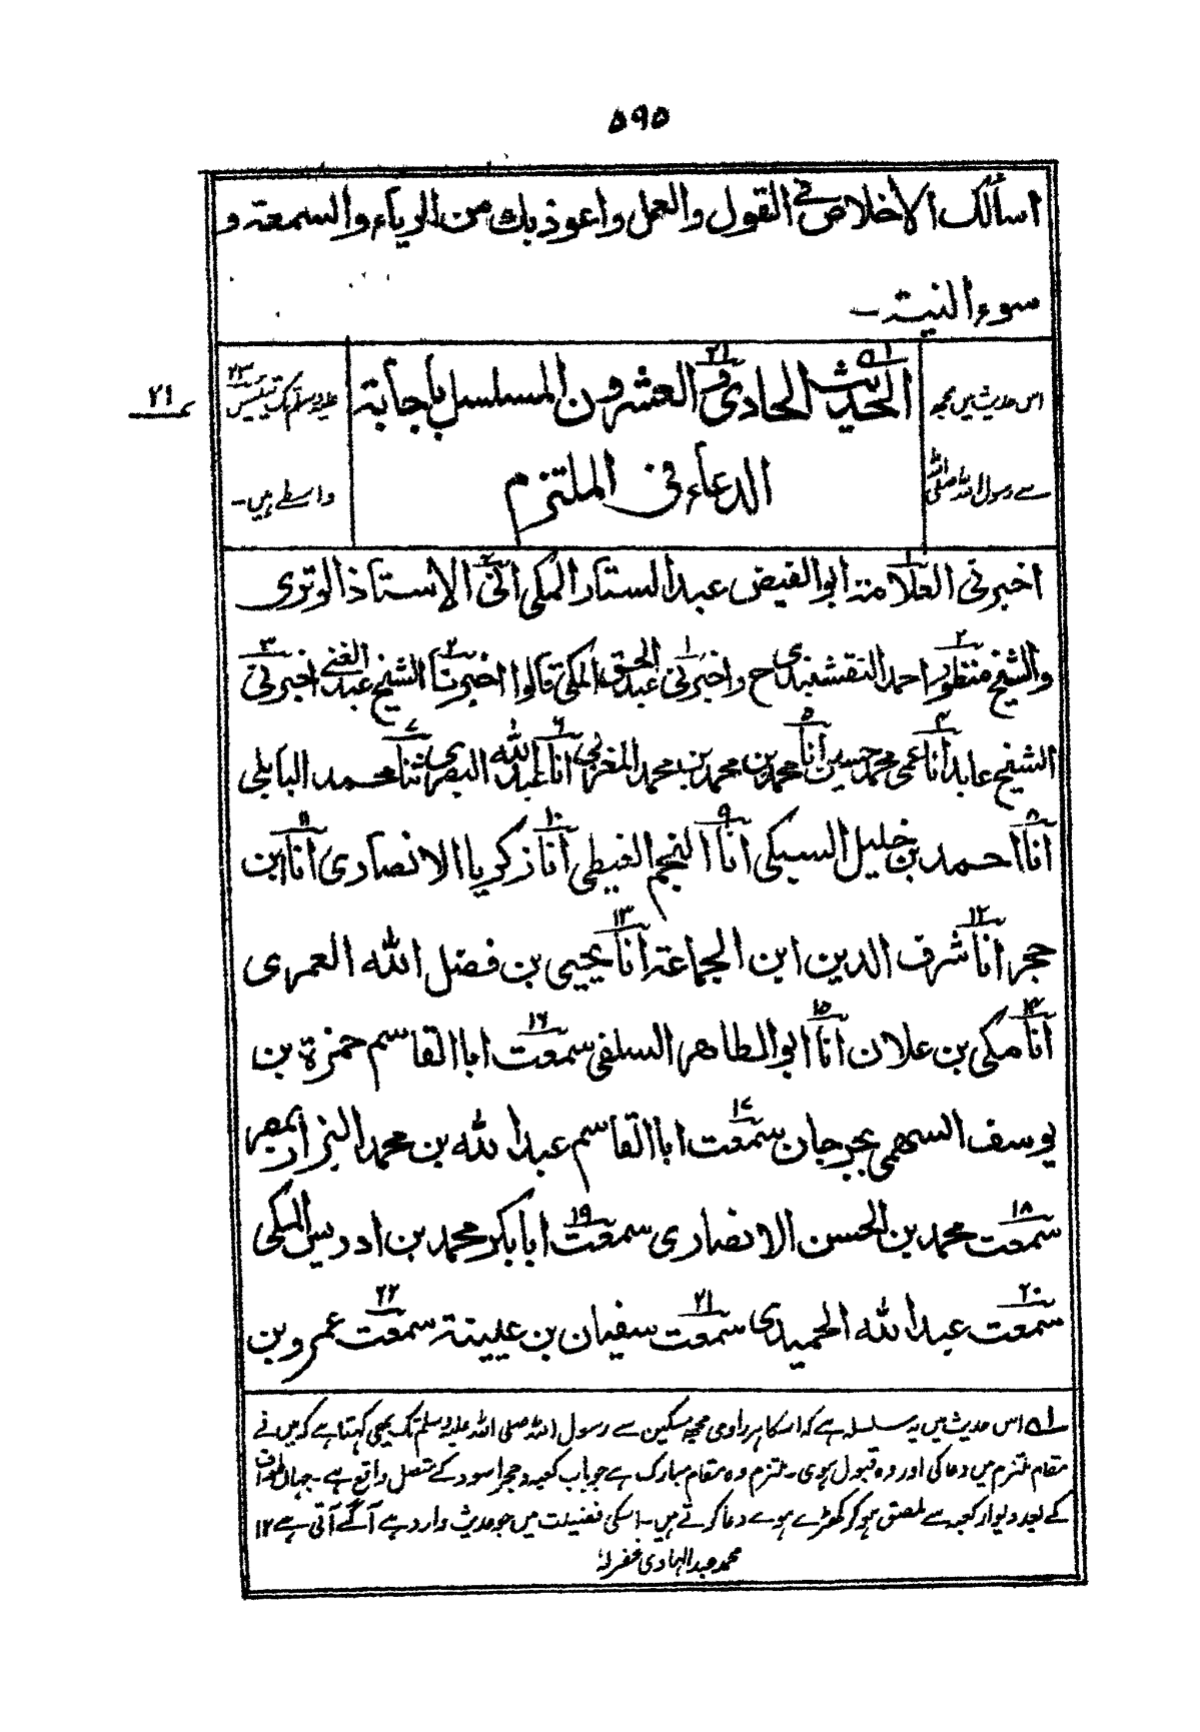 ۵۹۵
اسألك الاخلاص فى القول والعمل واعوذ بك من الرياء والسمعة و
سوء النية۔
اس حدیث میں مجھ
سے رسول اللہ صلی اللہ
الحديث الحادى والعشرون المسلسل باجابة
الدعاء فى الملتزم
علیہ وسلم تک تیئیس ۲۳
واسطے ہیں۔
۲۱
اخبرنى العلامة ابو الفيض عبد الستار المكى انى الاستاذ الوترى
والشيخ منظور احمد النقشبندى ح واخبرنى عبد الحق المكى قالوا اخبرنا الشيخ عبد الغنى اخبرنى
الشيخ عابد انا عمى محمد حسين انا محمد بن محمد بن محمد المغربى انا عبد الله البصرى ثنا محمد البابلى
انا احمد بن خليل السبكى انا النجم الغيطى انا زكريا الانصارى انا ابن
حجر انا شرف الدين ابن الجماعة انا يحيى بن فضل الله العمرى
انا مكى بن علان انا ابو الطاهر السلفى سمعت ابا القاسم حمزة بن
يوسف السهمى بجرجان سمعت ابا القاسم عبد الله بن محمد البزار بمصر
سمعت محمد بن الحسن الانصارى سمعت ابا بكر محمد بن ادريس المكى
سمعت عبد الله الحميدى سمعت سفيان بن عيينة سمعت عمرو بن
۱؎ اس حدیث میں یہ سلسلہ ہے کہ اسکا ہر راوی مجھ مسکین سے رسول اللہ صلی اللہ علیہ وسلم تک یہی کہتا ہے کہ میں نے
مقام ملتزم میں دعا کی اور وہ قبول ہوی۔ ملتزم وہ مقام مبارک ہے جو باب کعبہ و حجر اسود کے متصل واقع ہے۔ جہاں طواف
کے بعد دیوار کعبہ سے ملصق ہو کر کھڑے ہوے دعا کرتے ہیں۔ اسکی فضیلت میں جو حدیث وارد ہے آگے آتی ہے ۱۲
محمد عبد الہادی غفرلہٗ